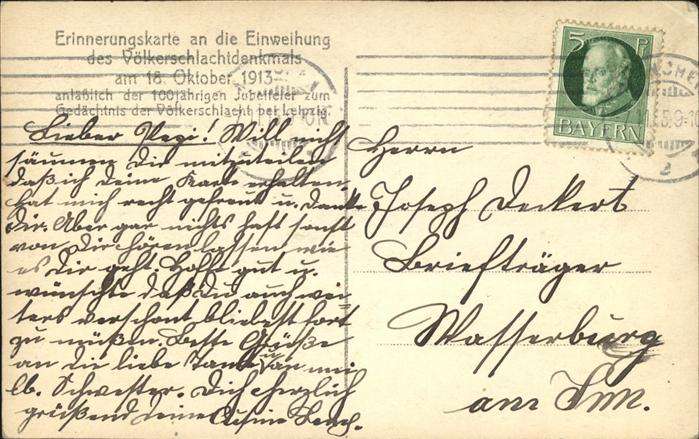 Erinnerungskarte an die Einweihung
des Völkerschlachtdenkmals
am 18. Oktober 1913
anläßlich der 100jährigen Jubelfeier zum
Gedächtnis der Völkerschlacht bei Leipzig
Lieber Pepi! Will nicht
säumen Dir mitzuteilen
daß ich deine Karte erhalten.
hat mich recht gefreut u. danke
Dir. Aber gar nichts hast sonst
von Dir hören lassen wie
es Dir geht. Hoffe gut u.
wünschte daß Du auch wei-
ters verschont bliebest fort
zu müßen. Beste Grüße
an die liebe Tante u. an mei
lb. Schwester. Dich herzlich
grüßend deine Cusine
5 P
BAYERN
Herrn
Joseph Deckert
Briefträger
Wasserburg
am Inn.